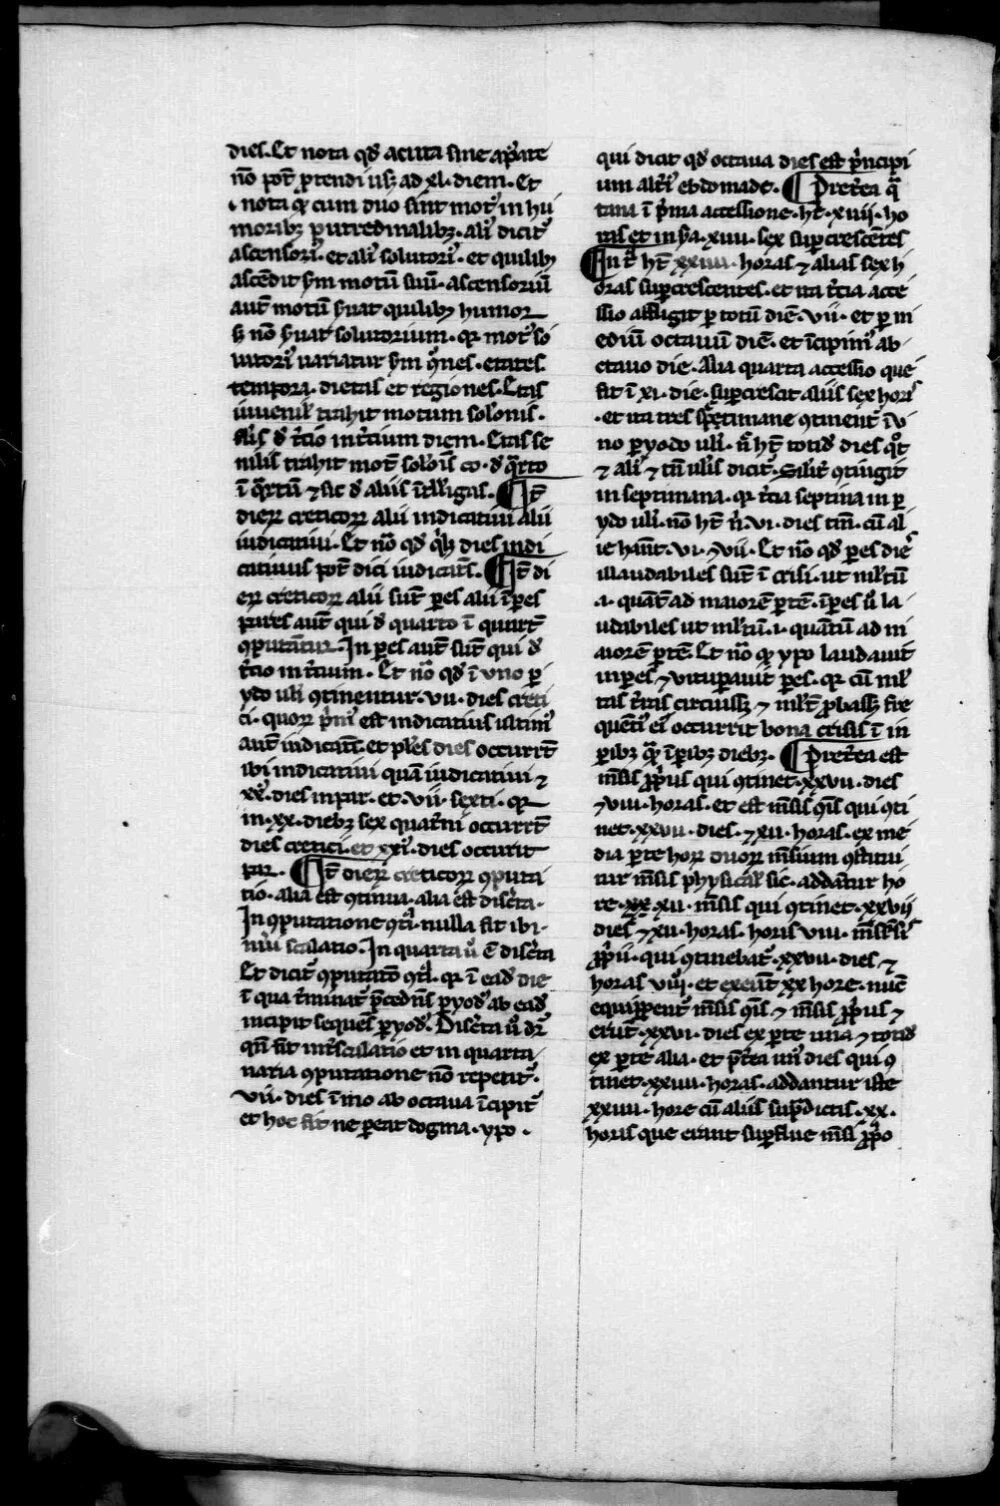 dies. Et nota qđ acuta sine ap̃ate
nõ pot̃ ꝓtendi usꝫ ad xl. diem. Et
nota ꝙ cum duo sint mot᷒ in hu
moribꝫ putredinalibꝫ. ali᷒ dicit᷒
ascensori᷒. et ali᷒ solutori᷒. et quilibꝫ
ascẽdit ẜm motũ suũ. ascensoriũ
aut̃ motũ ẜuat quilibꝫ humor
sꝫ nõ ẜuat solutorium. qꝛ mot᷒ sol
utori᷒ uariatur ẜm etates.
tempora. dietas et regiones. Etas
iuuenil̃ trahit motum solõnis.
đ t̃cio in t̃cium diem. Etas se
nilis trahit mot̃ đ q̃rto
ĩ q̃rtũ ⁊ sic đ aliis ĩtell̃igas. ¶ It̃
dieꝝ creticoꝝ alii indicatiui alii
iudicatiui. Et nõ qđ dies indi
catiuus pot̃ dici iudicat̃s. ¶ It̃ di
eꝝ creticoꝝ alii sut̃ ꝑes alii ĩpes
pares aut̃ qui đ quarto ĩ quart̃
ꝯputãtur. In ꝑes aut̃ sũt qui đ
t̃cio in t̃cium. Et nõ qđ ĩ uno ꝑi
odo uli ꝯtinentur. vii. dies creti
ci. quoꝝ p̃m᷒ est indicatiuus ultim᷒
aut̃ iudicati᷒. et pl̃es dies occurrt̃
ibi indicatiui quã iudicatiui ⁊
xx᷒. dies inpar. et. vii. sexti. qꝛ
in. xx. diebꝫ sex quat̃ni occurrt̃
dies cretici. et xxi᷒. dies occurrit
par. ¶ It̃ dieꝝ creticoꝝ ꝯputa
tio. alia est ꝯtinua. alia est disc̃ta.
In ꝯputatione ꝯti᷒. nulla fit ibi.
scalatio. In quarta u᷒ ẽ disc̃ta
Et dicit᷒ ꝯputatõ ꝯt̃l. qꝛ ĩ eađ die
ĩ qua t̃minat᷒ p̃cedñs ꝑyod᷒ ab eađ
incipit sequẽs ꝑyod᷒. Disc̃ta u᷒ dr̃
qñ fit int̃scalatio et in quarta
naria ꝯputatione nõ repetit᷒.
vii. dies ĩmo ab octaua ĩcipit᷒
et hoc fit ne pereat dogma. ypo.
qui dicit qđ octaua dies est p̃ncipi
um alt̃i᷒ ebdomade. ¶ Pret̃ea q̃r
tana ĩ p̃ma accessione. ht̃. xviij. ho
ras et in s̃a. xviii. sex suꝑcrescẽtes
¶ In t̃ ht̃ xxiiii. horas ⁊ alias sex h
oras suꝑcrescentes. et ita t̃cia acce
ssio affligit ꝑ totũ diẽ. vii. et ꝑ m
ediũ octauũ diẽ. et ĩcipim᷒ ab
ctauo die. Alia quarta accessio que
fit ĩ xi. die. suꝑcrescit aliis sex hor᷒
et ita tres sep̃timane ꝯtinent᷒ ĩ u
no ꝑyodo uli. ñ ht̃ totiđ dies qͦt
⁊ ali᷒ ⁊ tñ ul̃is dicit᷒. Silit̃ ꝯtingit
in septimana. qꝛ t̃cia septima in ꝑ
yodo uli. nõ ht̃ ñ. vi. dies tm̃. cũ al
ie hañt. vi. ⁊ vii. Et nõ qđ ꝑes die᷒
illaudabiles sũt ĩ crisi. ut ml̃tũ
.i. quãt̃ ad maiorẽ ꝑtẽ. ĩpes u᷒ la
udabiles ut ml̃tũ. i. quãtũ ad m
aiorẽ ꝑtẽ. Et nõ ꝙ ypo laudauit
inpes ⁊ uituꝑauit ꝑes. qꝛ cũ ml̃
tas t̃ras circuissꝫ ⁊ ml̃t̃ ꝓbassꝫ fre
quẽti᷒ ei᷒ occurrit bona crisis ĩ in
ꝑibꝫ q̃ ĩ ꝑibꝫ diebꝫ. ¶ Pret̃ea est
m̃sis ꝓp̃ius qui ꝯtinet. xxvii. dies
⁊ viii. horas. et est m̃sis qui ꝯti
net. xxvii. dies. ⁊ xii. horas. ex me
dia ꝑte hoꝝ duoꝝ m̃sium ꝯstitui
tur m̃sis physical̃ sic. addãtur ho
re. xx xii. m̃sis qui ꝯtinet. xxvij
dies ⁊ xii. horas. horis viii.
ꝓp̃ii. qui ꝯtinebat᷒. xxvii. dies ⁊
horas viii. et exeũt xx hore. nũc
m̃sis ⁊ m̃sis ꝓp̃ius ⁊
erũt. xxvi. dies ex ꝑte una ⁊ totiđ
ex ꝑte alia. et p̃t̃ea un᷒ dies qui ꝯ
tinet. xxiiii. horas. addantur iste
xxiiii. hore cũ aliis sup̃dictis. xx.
horis que erunt suꝑflue m̃si ꝓp̃o